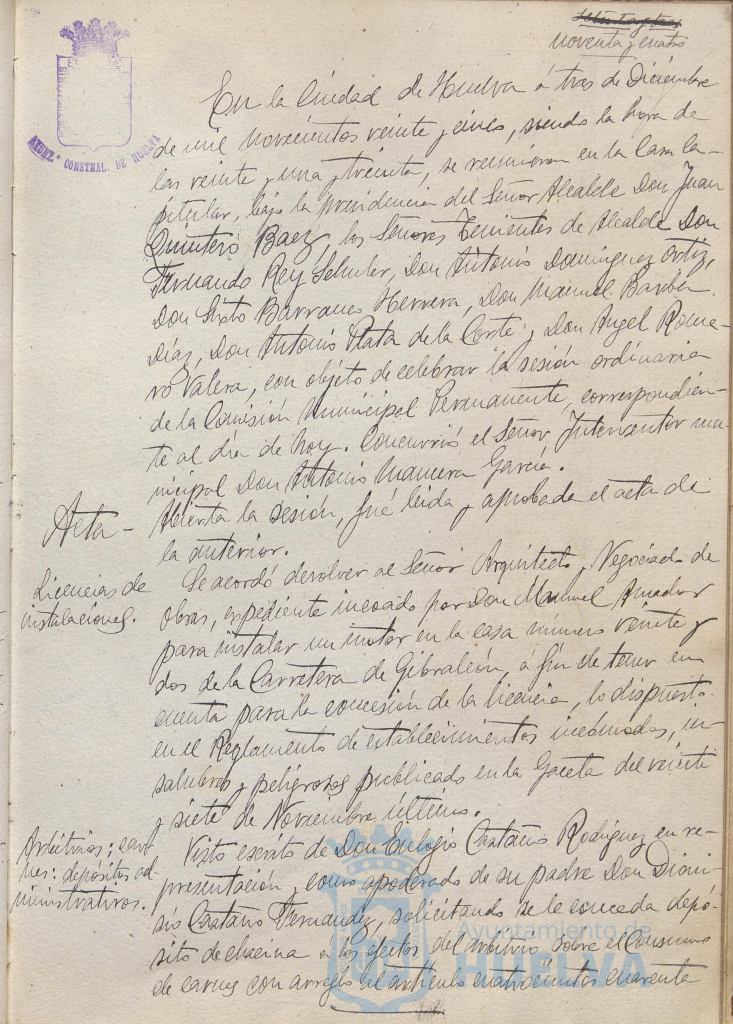 noventa y cuatro
AYUNZ.º CONSTNAL. DE HUELVA
En la Ciudad de Huelva á tres de Diciembre
de mil novecientos veinte y cinco, siendo la hora de
las veinte y una y treinta, se reunieron en la Casa Ca-
pitular, bajo la presidencia del Señor Alcalde Don Juan
Quintero Baez, los Señores Tenientes de Alcalde Don
Fernando Rey Schuler, Don Antonio Dominguez Ortiz,
Don Sixto Barranco Herrera, Don Manuel Barba
Díaz, Don Antonio Plata de la Corte y Don Angel Rome-
ro Valera, con objeto de celebrar la sesión ordinaria
de la Comisión Municipal Permanente, correspondien-
te al día de hoy. Concurrió el Señor Interventor mu-
nicipal Don Antonio García.
Acta - Abierta la sesión, fué leida y aprobada el acta de
la anterior.
Licencias de
instalaciones.
Se acordó devolver al Señor Arquitecto y Negociado de
obras, expediente incoado por Don Manuel Amador
para instalar un motor en la casa número veinte y
dos de la Carretera de Gibraleón, á fin de tener en
cuenta para la concesión de la licencia, lo dispuesto
en el Reglamento de establecimientos incómodos, in-
salubres y peligrosos publicado en la Gaceta del veinte
y siete de Noviembre último.
Arbitrios; car-
nes: depósitos ad-
ministrativos.
Visto escrito de Don Eulogio Castaño Rodríguez en re-
presentación y como apoderado de su padre Don Dioni-
sio Castaño Fernandez, solicitando se le conceda depó-
sito de chacina a los efectos del arbitrio sobre el Consumo
de carnes con arreglo al artículo cuatrocientos cuarenta
Ayuntamiento de
HUELVA